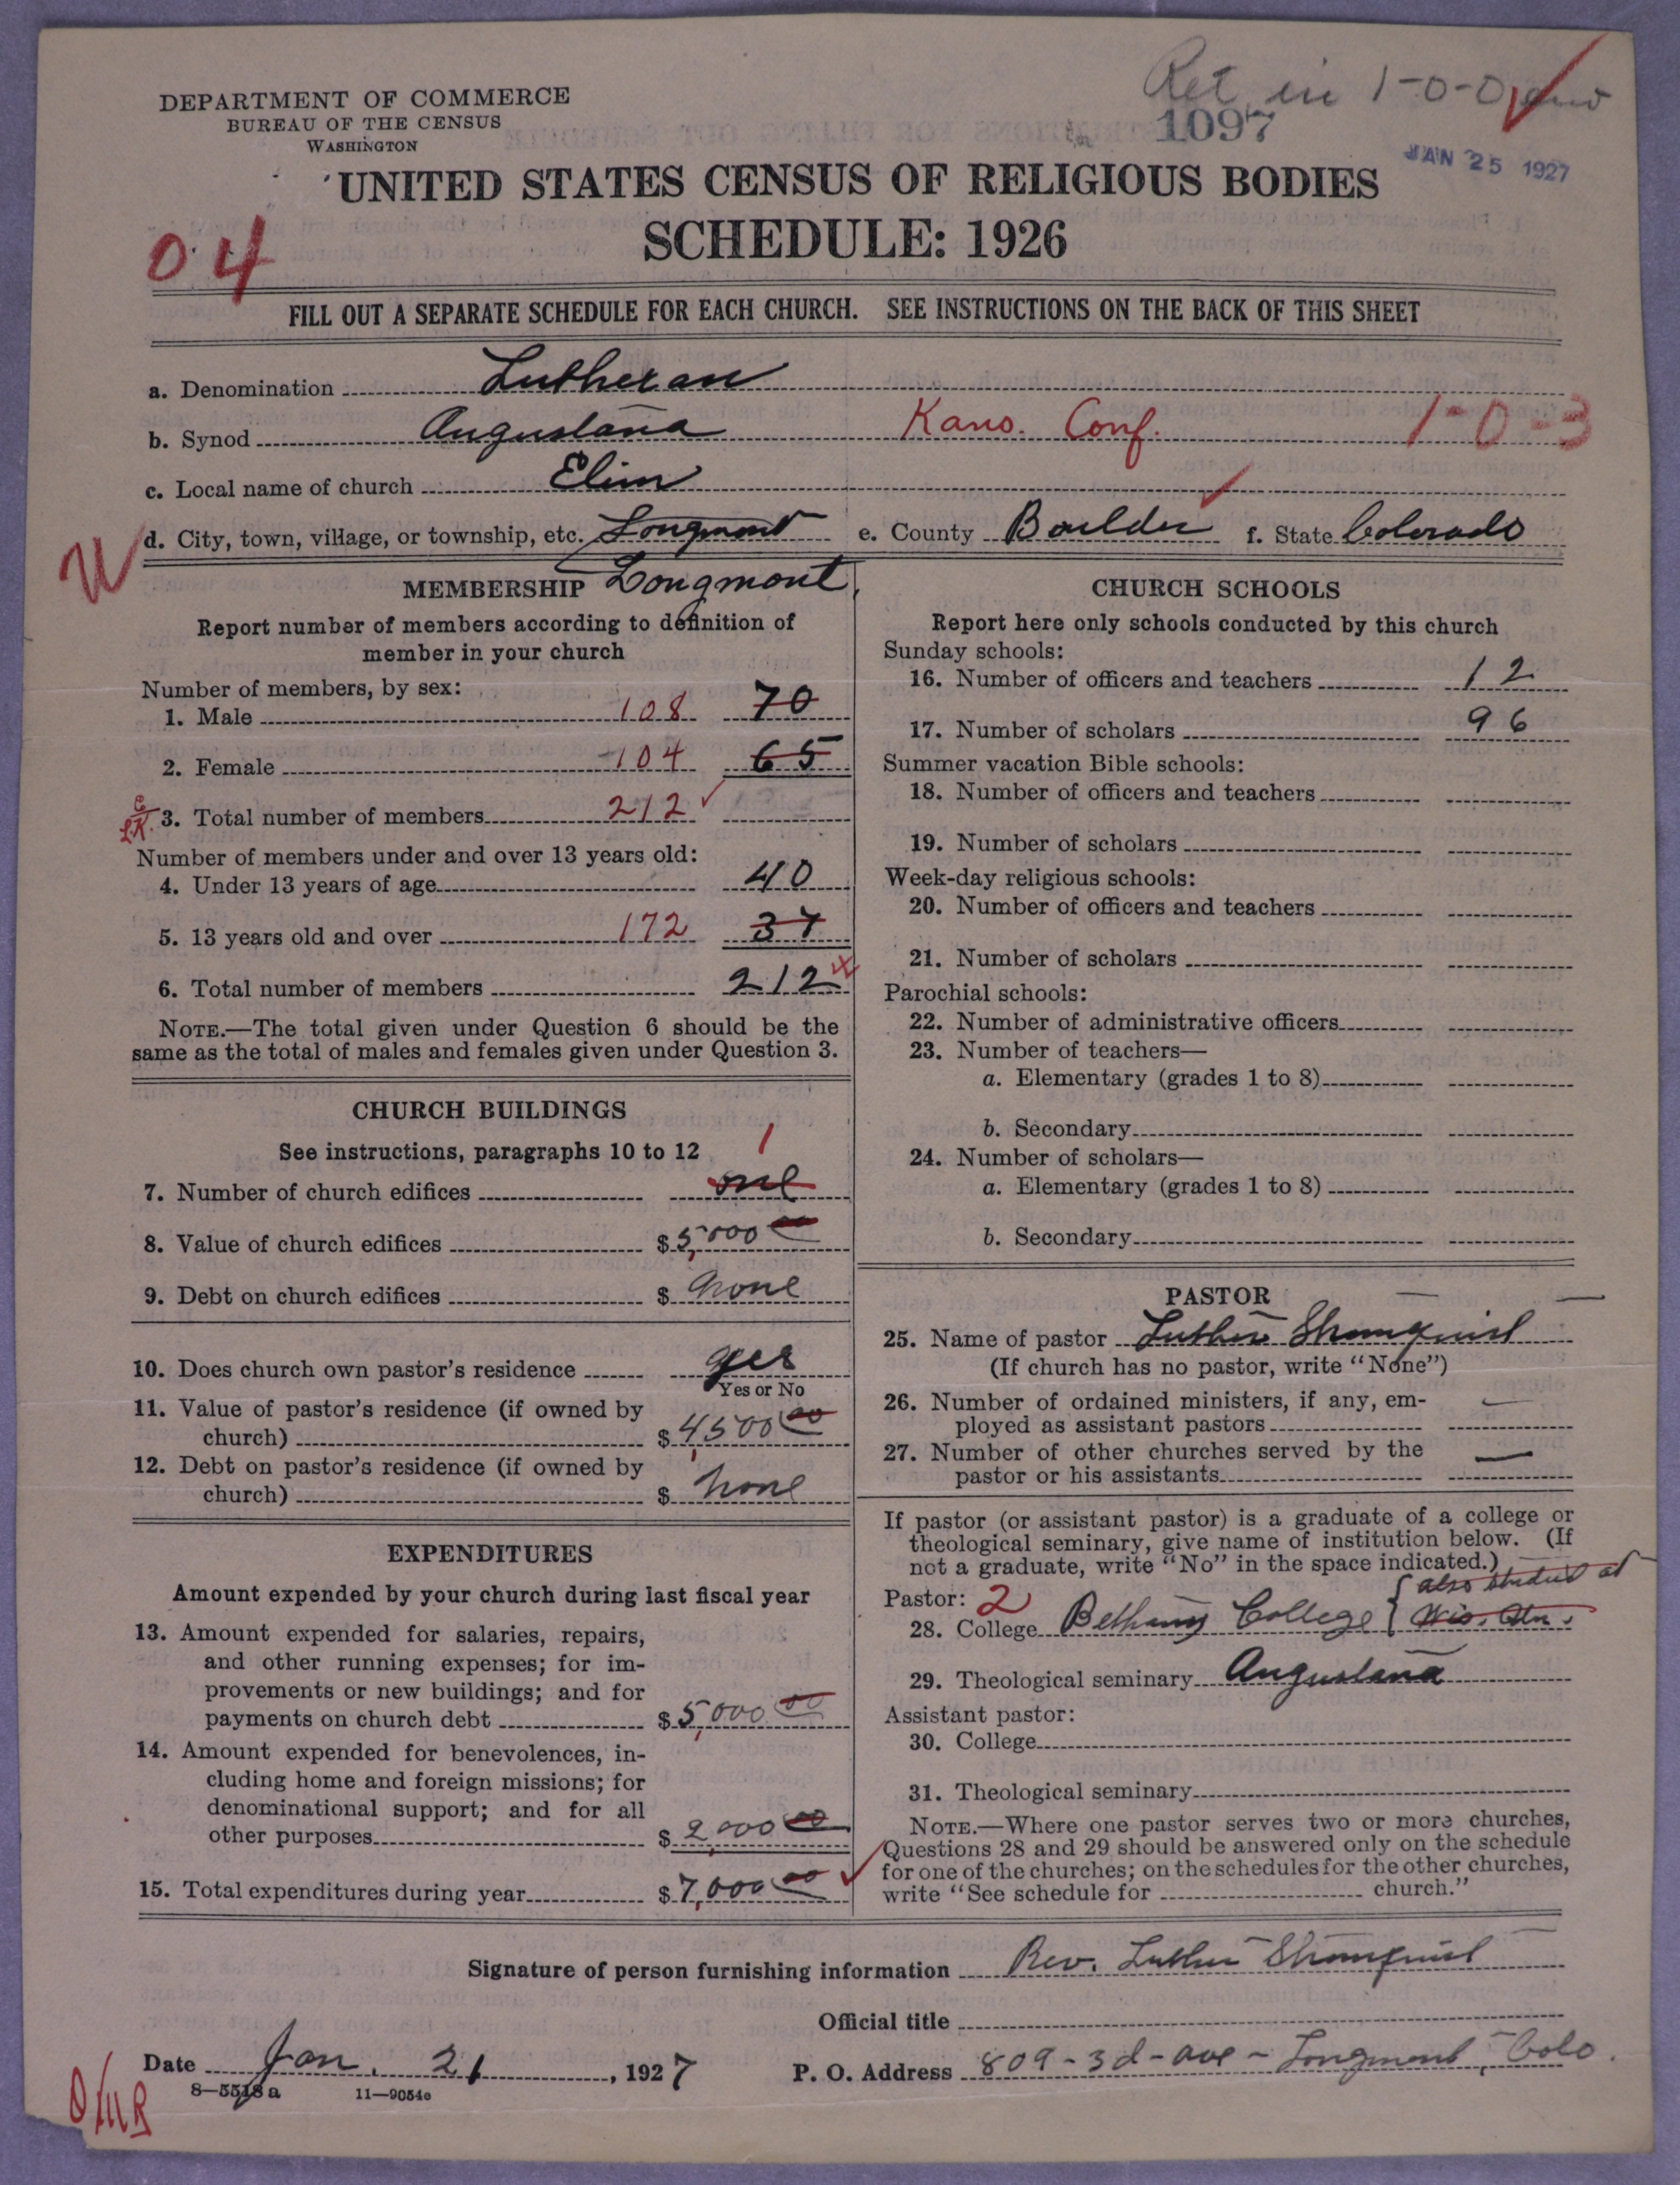 Ret in 1-0-0
DEPARTMENT OF COMMERCE
BUREAU OF THE CENSUS
WASHINGTON
1097
JAN 25 1927
UNITED STATES CENSUS OF RELIGIOUS BODIES
SCHEDULE: 1926
04
FILL OUT A SEPARATE SCHEDULE FOR EACH CHURCH. SEE INSTRUCTIONS ON THE BACK OF THIS SHEET
a. Denomination Lutheran
b. Synod Augustana Kans. Conf. 1-0-3
c. Local name of church Elim
d. City, town, village, or township, etc. Longmont e. County Boulder f. State Colorado
MEMBERSHIP Longmont
Report number of members according to definition of
member in your church
Number of members, by sex:
1. Male 108 70
2. Female 104 65
3. Total number of members 212
Number of members under and over 13 years old:
4. Under 13 years of age 40
5. 13 years old and over 172 37
6. Total number of members 212
NOTE.—The total given under Question 6 should be the
same as the total of males and females given under Question 3.
CHURCH BUILDINGS
See instructions, paragraphs 10 to 12 1
7. Number of church edifices one
8. Value of church edifices $ 5,000 00
9. Debt on church edifices $ none
10. Does church own pastor's residence yes
Yes or No
11. Value of pastor's residence (if owned by
church) $ 4,500 00
12. Debt on pastor's residence (if owned by
church) $ none
EXPENDITURES
Amount expended by your church during last fiscal year
13. Amount expended for salaries, repairs,
and other running expenses; for im-
provements or new buildings; and for
payments on church debt $ 5,000 00
14. Amount expended for benevolences, in-
cluding home and foreign missions; for
denominational support; and for all
other purposes $ 2,000 00
15. Total expenditures during year $ 7,000 00
CHURCH SCHOOLS
Report here only schools conducted by this church
Sunday schools:
16. Number of officers and teachers 12
17. Number of scholars 96
Summer vacation Bible schools:
18. Number of officers and teachers
19. Number of scholars
Week-day religious schools:
20. Number of officers and teachers
21. Number of scholars
Parochial schools:
22. Number of administrative officers
23. Number of teachers—
a. Elementary (grades 1 to 8)
b. Secondary
24. Number of scholars—
a. Elementary (grades 1 to 8)
b. Secondary
PASTOR
25. Name of pastor Luther Stromquist
(If church has no pastor, write "None")
26. Number of ordained ministers, if any, em-
ployed as assistant pastors —
27. Number of other churches served by the
pastor or his assistants —
If pastor (or assistant pastor) is a graduate of a college or
theological seminary, give name of institution below. (If
not a graduate, write "No" in the space indicated.)
Pastor: 2 also studied at
28. College Bethany College
29. Theological seminary Augustana
Assistant pastor:
30. College
31. Theological seminary
NOTE.—Where one pastor serves two or more churches,
Questions 28 and 29 should be answered only on the schedule
for one of the churches; on the schedules for the other churches,
write "See schedule for church."
Signature of person furnishing information Rev. Luther Stromquist
Official title
Date Jan. 21, 1927 P. O. Address 809-3d-ave - Longmont, Colo.
8—5518a 11—9054e